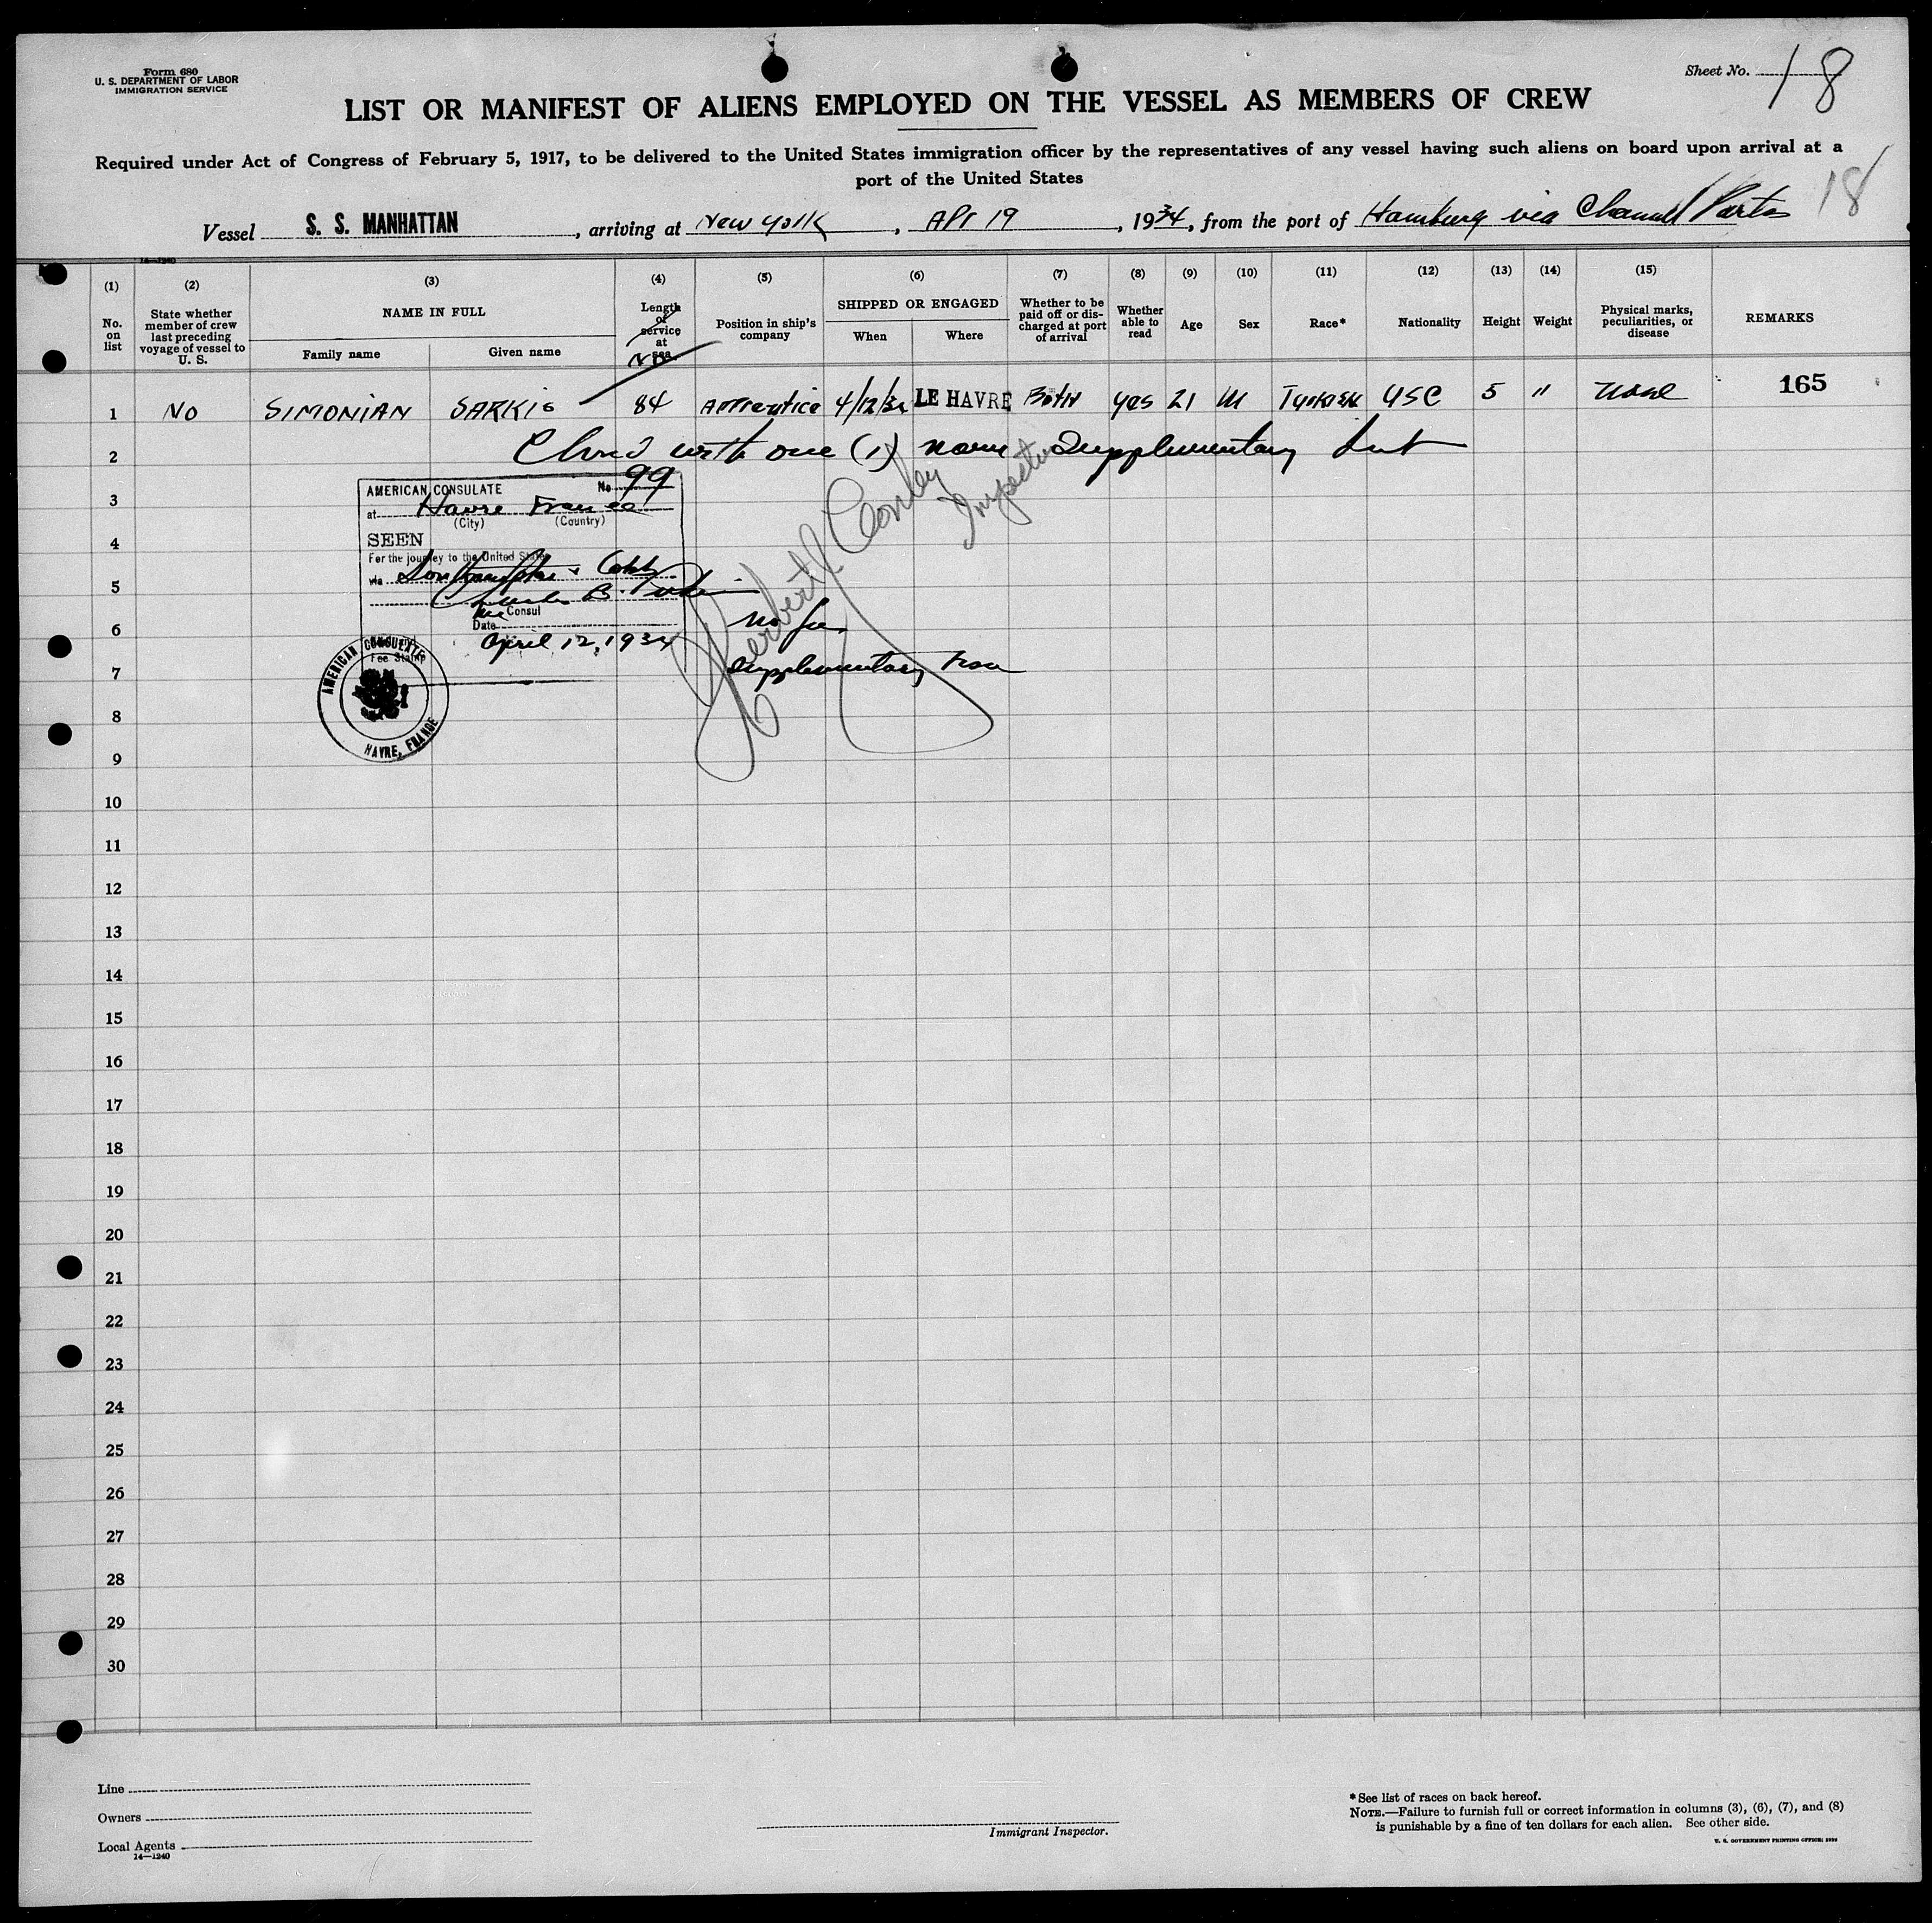 Form 680
U. S. DEPARTMENT OF LABOR
IMMIGRATION SERVICE
Sheet No. 18
LIST OR MANIFEST OF ALIENS EMPLOYED ON THE VESSEL AS MEMBERS OF CREW
Required under Act of Congress of February 5, 1917, to be delivered to the United States immigration officer by the representatives of any vessel having such aliens on board upon arrival at a
port of the United States
18
Vessel S. S. MANHATTAN, arriving at New York, Apr 19, 1934, from the port of Hamburg via Channel Ports
14—1240
(1) (2) (3) (4) (5) (6) (7) (8) (9) (10) (11) (12) (13) (14) (15)
No. on list
State whether member of crew last preceding voyage of vessel to U. S.
NAME IN FULL
Family name Given name
Length of service at sea
Position in ship's company
SHIPPED OR ENGAGED
When Where
Whether to be paid off or discharged at port of arrival
Whether able to read
Age
Sex
Race*
Nationality
Height
Weight
Physical marks, peculiarities, or disease
REMARKS
1 NO SIMONIAN SARKIS 84 Apprentice 4/12/34 LE HAVRE Both yes 21 M Turkish USC 5 " None 165
2 Closed with one (1) name Supplementary List
AMERICAN CONSULATE No 99
3
at Havre France
(City) (Country)
4
SEEN
For the journey to the United States
via Southampton & Cobh
5
Consul
6
Date April 12, 1934
No fee
Fee Stamp
7
Supplementary
AMERICAN CONSULATE
HAVRE, FRANCE
Herbert Conley
Inspector
8
9
10
11
12
13
14
15
16
17
18
19
20
21
22
23
24
25
26
27
28
29
30
Line
Owners
Local Agents
14—1240
Immigrant Inspector.
*See list of races on back hereof.
NOTE.—Failure to furnish full or correct information in columns (3), (6), (7), and (8)
is punishable by a fine of ten dollars for each alien. See other side.
U. S. GOVERNMENT PRINTING OFFICE: